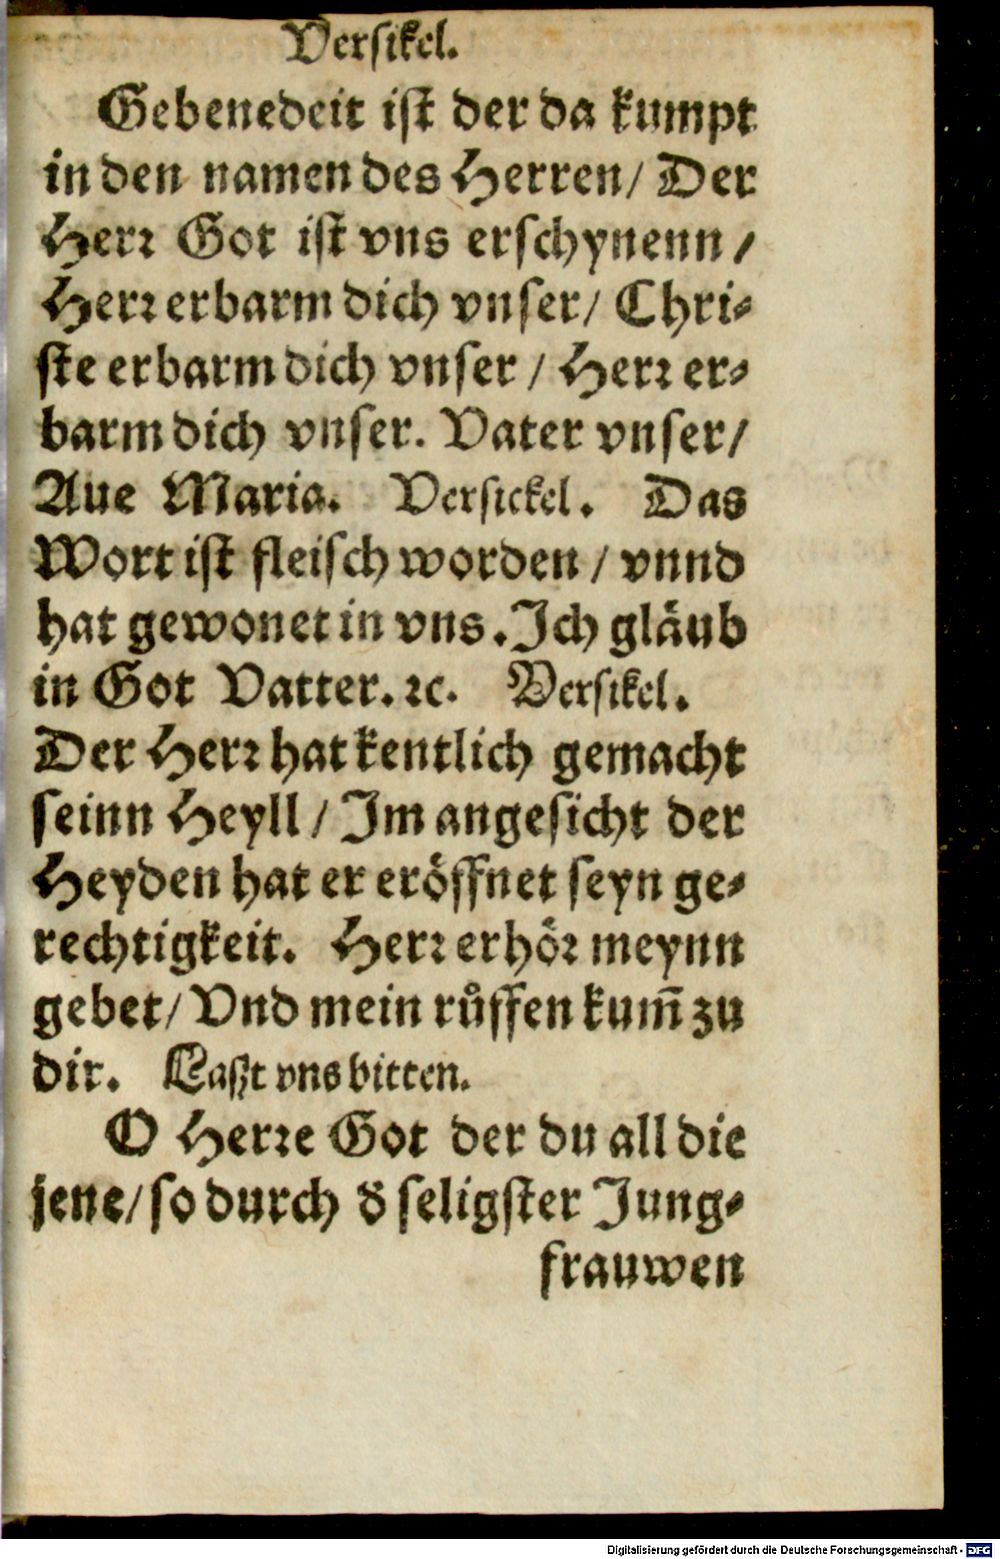 Versikel.
Gebenedeit ist der da kumpt
in den namen des Herren/ Der
Herr Got ist vns erschynenn /
Herr erbarm dich vnser/ Chri-
ste erbarm dich vnser / Herr er-
barm dich vnser. Vater vnser/
Aue Maria. Versickel. Das
Wort ist fleisch worden / vnnd
hat gewonet in vns. Ich gläub
in Got Vatter. ꝛc. Versikel.
Der Herr hat kentlich gemacht
seinn Heyll / Im angesicht der
Heyden hat er eröffnet seyn ge-
rechtigkeit. Herr erhör meynn
gebet/ Vnd mein růffen kum̄ zu
dir. Laszt vns bitten.
O Herre Got der du all die
jene/ so durch d̕ seligster Jung-
frauwen
Digitalisierung gefördert durch die Deutsche Forschungsgemeinschaft - DFG